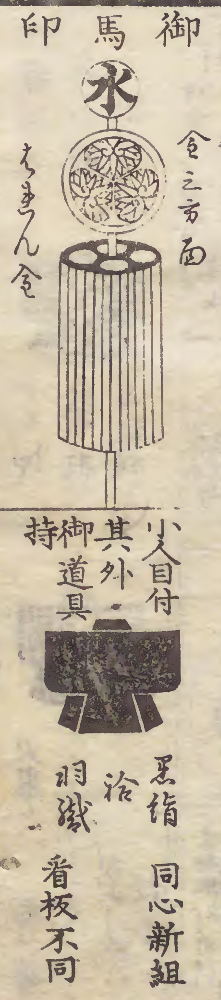 御馬印
水
金三方面
はれん金
小人目付
其外
御道具
持
黒絹
袷
羽織
同心新組
看板不同